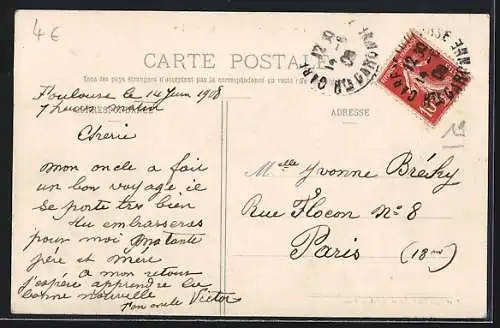 4€
CARTE POSTALE
Tous les pays étrangers n'acceptent pas la correspondance au
CORRESPONDANCE
ADRESSE
Toulouse le 14 Juin 1908
7 heures matin
Cherie
Mon oncle a fait
un bon voyage il
se porte tres bien
Tu embrasseras
pour moi ma tante
père et mère
a mon retour
j'espère apprendre la
bonne nouvelle
Ton oncle Victor
Melle Yvonne
Rue Flocon No 8
Paris (18me)
GARE
10